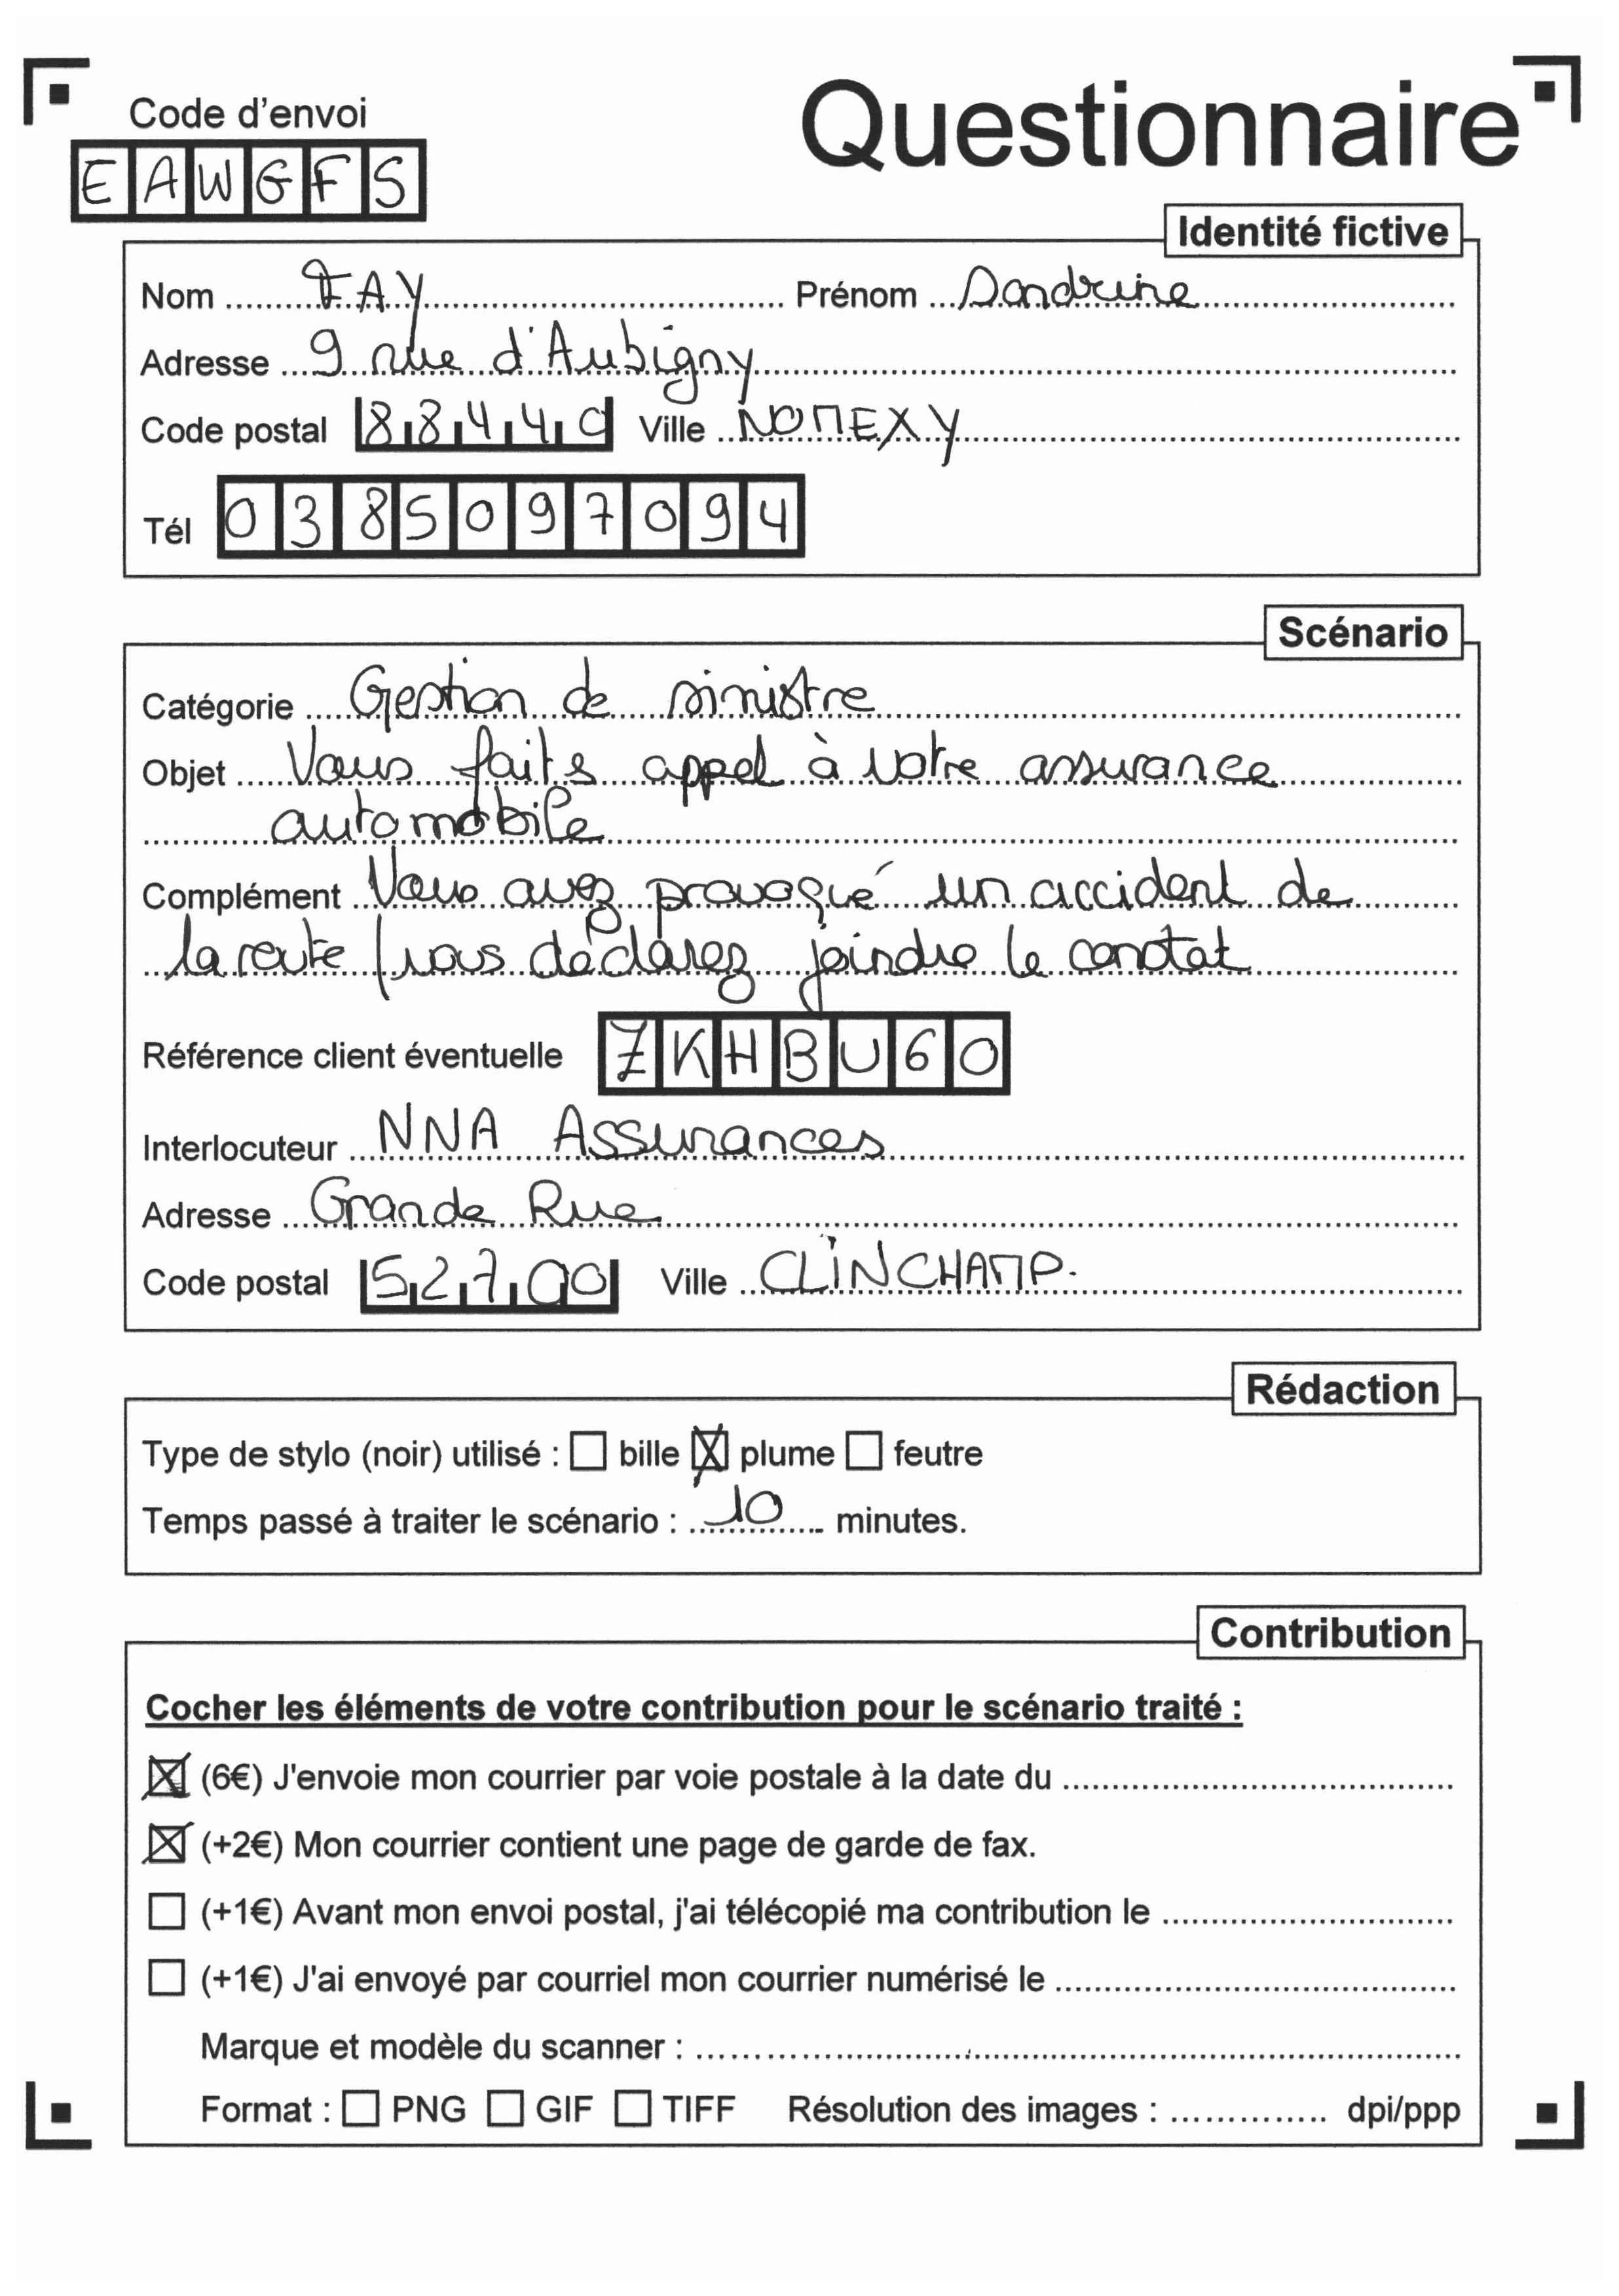 Code d'envoi
EAWGFS
Questionnaire
Identité fictive
Nom FAY Prénom Sandrine
Adresse 9 rue d'Aubigny
Code postal 88440 Ville NOMEXY
Tél 0385097094
Scénario
Catégorie Gestion de sinistre
Objet Vous faits appel à votre assurance
automobile
Complément Vous avez provoqué un accident de
la route (vous déclarez joindre le constat
Référence client éventuelle ZKHBU60
Interlocuteur NNA Assurances
Adresse Grande Rue
Code postal 52700 Ville CLINCHAMP.
Rédaction
Type de stylo (noir) utilisé : ☐ bille ☒ plume ☐ feutre
Temps passé à traiter le scénario : 10 minutes.
Contribution
Cocher les éléments de votre contribution pour le scénario traité :
☒ (6€) J'envoie mon courrier par voie postale à la date du
☒ (+2€) Mon courrier contient une page de garde de fax.
☐ (+1€) Avant mon envoi postal, j'ai télécopié ma contribution le
☐ (+1€) J'ai envoyé par courriel mon courrier numérisé le
Marque et modèle du scanner :
Format : ☐ PNG ☐ GIF ☐ TIFF Résolution des images : dpi/ppp